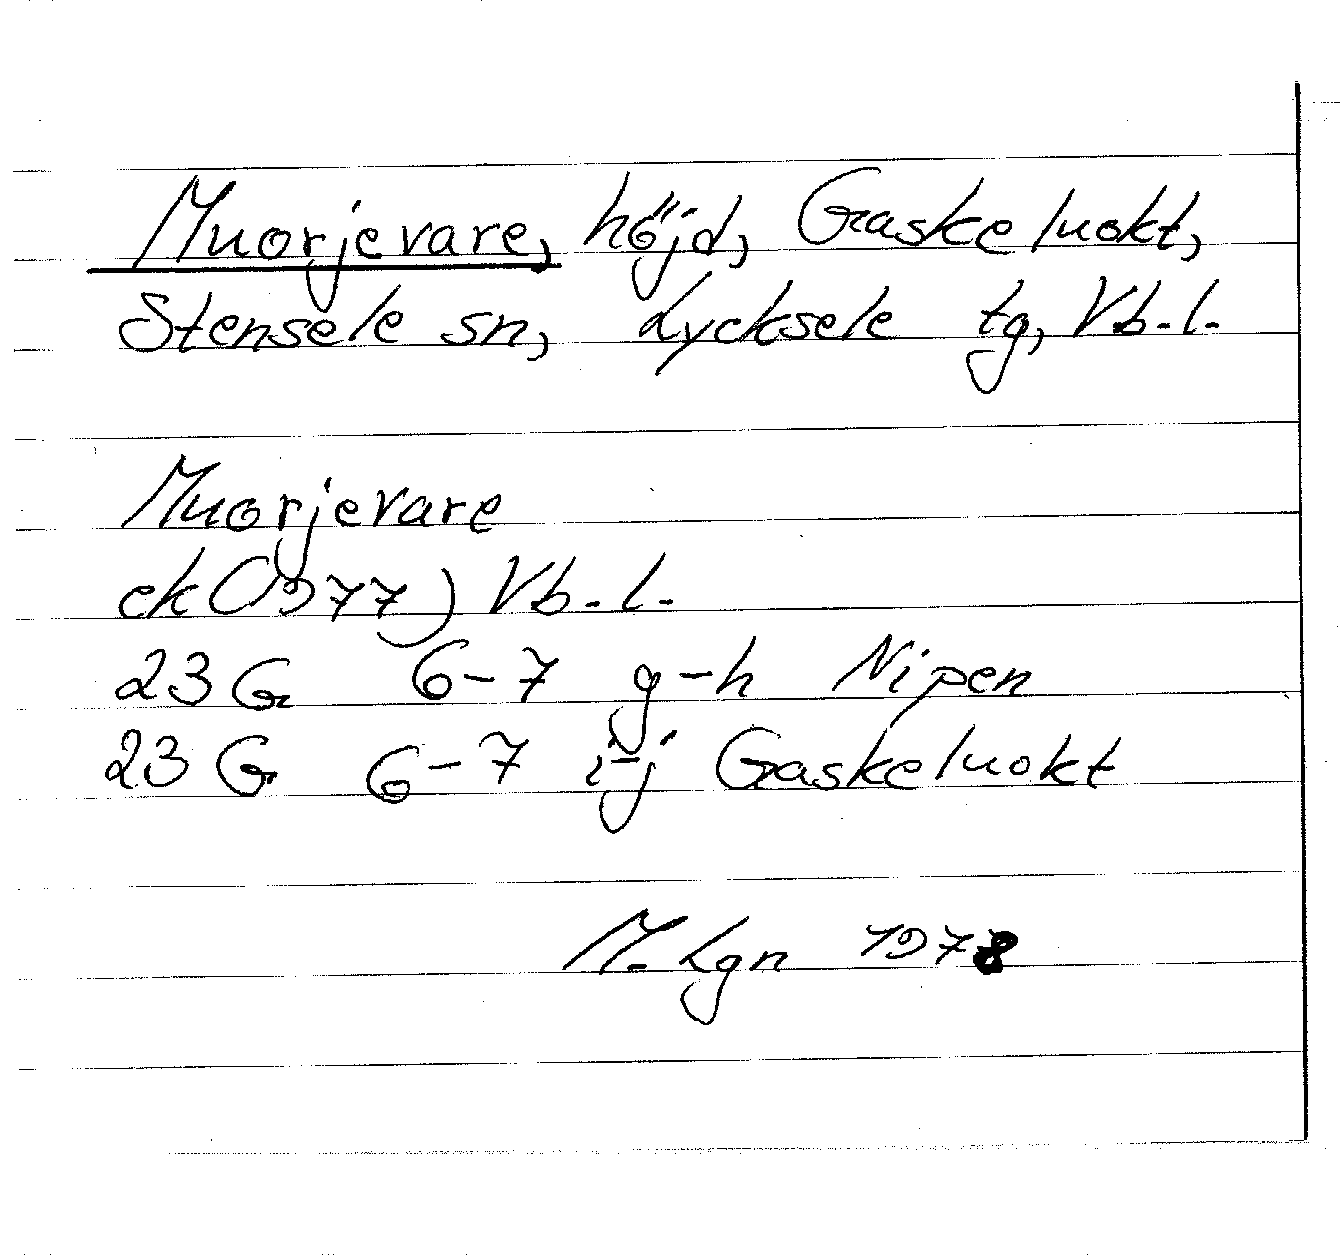 Muorjevare, höjd, Gaskeluokt,
Stensele sn, Lycksele tg, Vb.l.
Muorjevare
ek (1977) Vb.l.
23 G 6-7 g-h Nipen
23 G 6-7 i-j Gaskeluokt
M. Lgn 1978